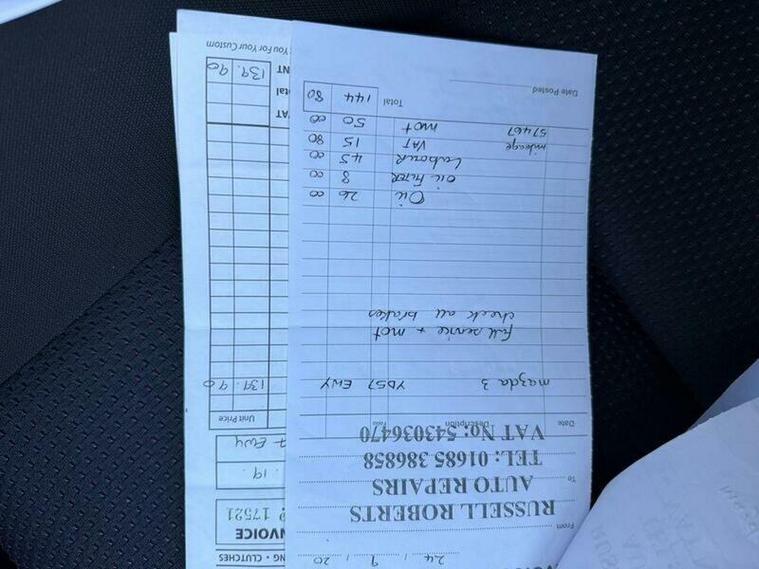 24 / 9 / 20
From
RUSSELL ROBERTS
AUTO REPAIRS
To
TEL: 01685 386858
VAT No: 543036470
Date Description Folio
mazda 3 YD57 EWY
full service + mot
check all brakes
Oil 26 00
OIL FILTER 8 00
Labour 45 00
mileage VAT 15 80
57467 mot 50 00
Total 144 80
Date Posted
NG • CLUTCHES
NVOICE
17521
19
EWY
Unit Price
139.90
VAT
tal
NT 139.90
You For Your Custom